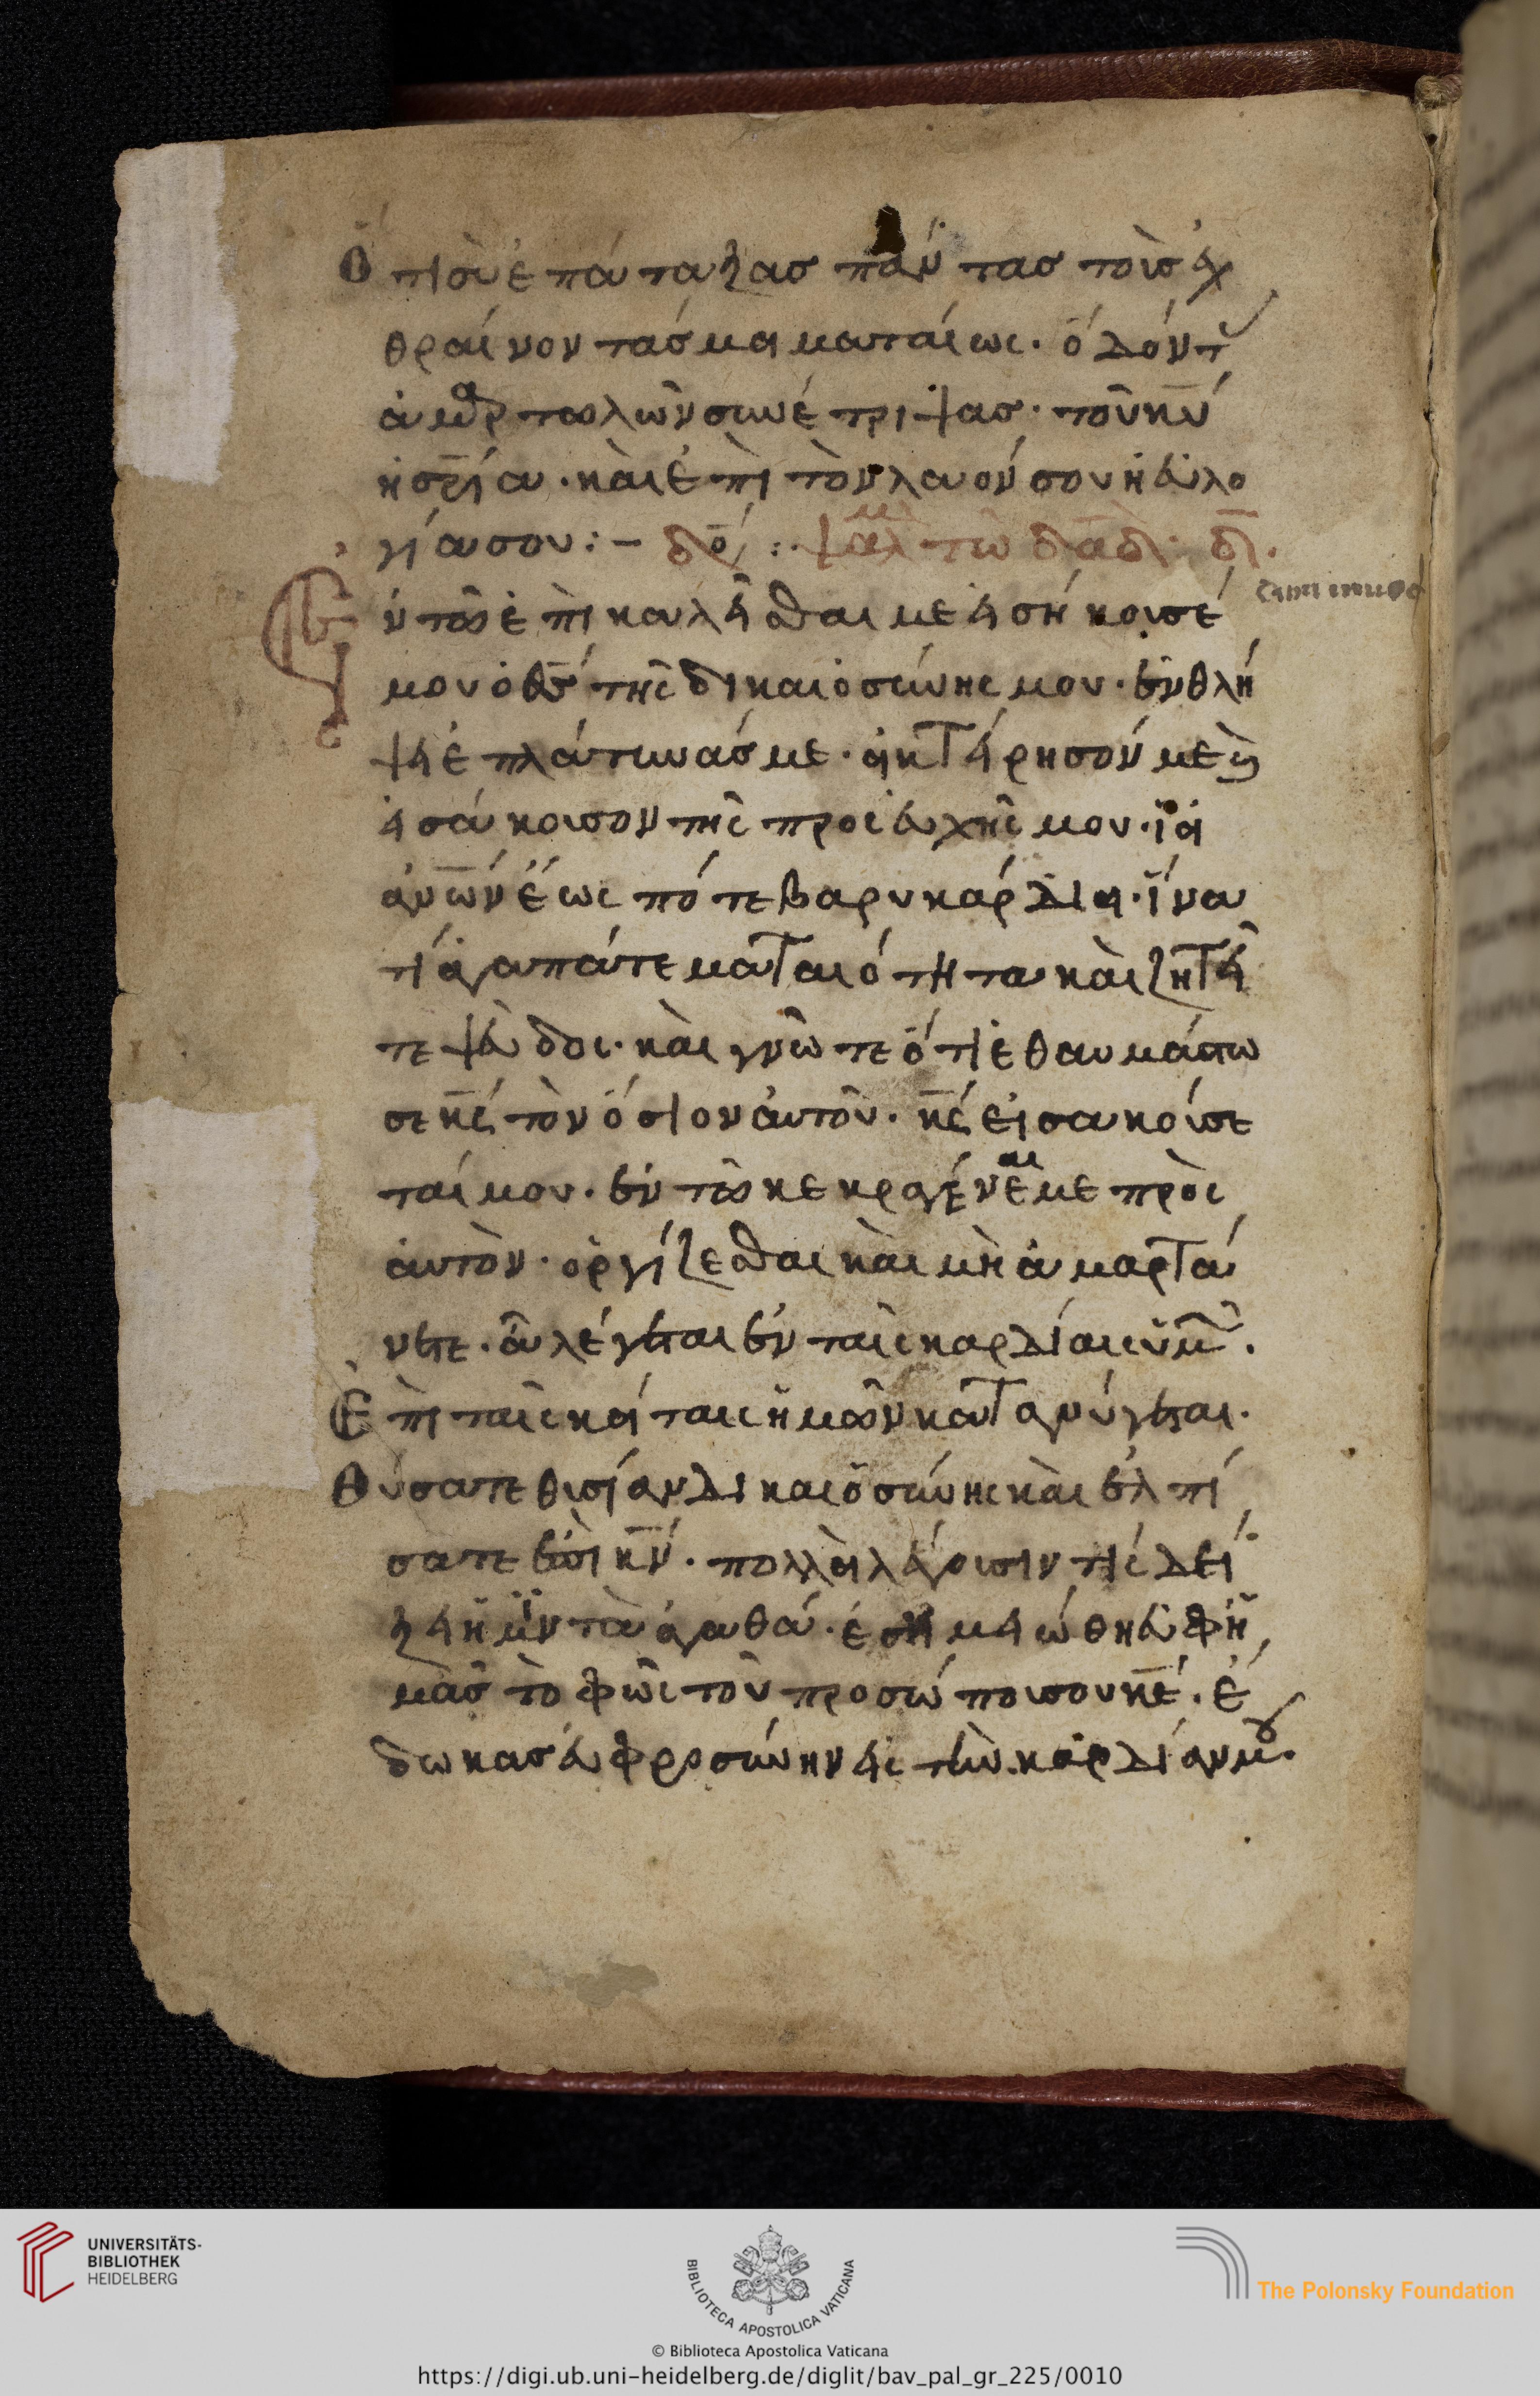 Ὅτι σὺ ἐπάταξας πάντας τοὺς ἐχ
θραίνοντάς μοι ματαίως· ὀδόντ
ἁμαρτωλῶν συνέτριψας· τοῦ κυ
ἡ σρία· καὶ ἐπὶ τὸν λαόν σου ἡ εὐλο
γία σου:– δό :· ψαλμ τῶ δαδ· δ.
Ἐν τῶ ἐπικαλεῖσθαι με εἰσήκουσέ
μου ὁ θς τῆς δικαιοσύνης μου· ἐν θλί
ψει ἐπλάτυνάς με· οἰκτείρησόν με κ
εἰσάκουσον τῆς προσευχῆς μου· ϊοὶ
ἀνων ἕως πότε βαρυκάρδιοι· ἵνα
τί ἀγαπάτε ματαιότητα καὶ ζητεῖ
τε ψεῦδος· καὶ γνῶτε ὅτι ἐθαυμάστω
σε κς τὸν ὅσιον αὐτοῦ· κς εἰσακούσε
ταί μου· ἐν τῶ κεκραγέναι με πρὸς
αὐτὸν· ὀργίζεσθαι καὶ μὴ ἁμαρτά
νετε· ἃ λέγεται ἐν ταῖς καρδίαις ὑμ.
Ἐπὶ ταῖς κοίταις ἡμῶν κατανύγεται·
Θύσατε θυσίαν δικαιοσύνης καὶ ἐλπί
σατε ἐπὶ κν· πολλοὶ λέγουσιν τίς δεί
ξει ἡμῖν τὰ ἀγαθά· ἐσημειώθη ἐφ ἡ
μᾶς τὸ φῶς τοῦ προσώπου σου κε· ἔ
δωκας εὐφροσύνην εἰς τὴν καρδίαν μου.
UNIVERSITÄTS-
BIBLIOTHEK
HEIDELBERG
BIBLIOTECA APOSTOLICA VATICANA
The Polonsky Foundation
© Biblioteca Apostolica Vaticana
https://digi.ub.uni-heidelberg.de/diglit/bav_pal_gr_225/0010